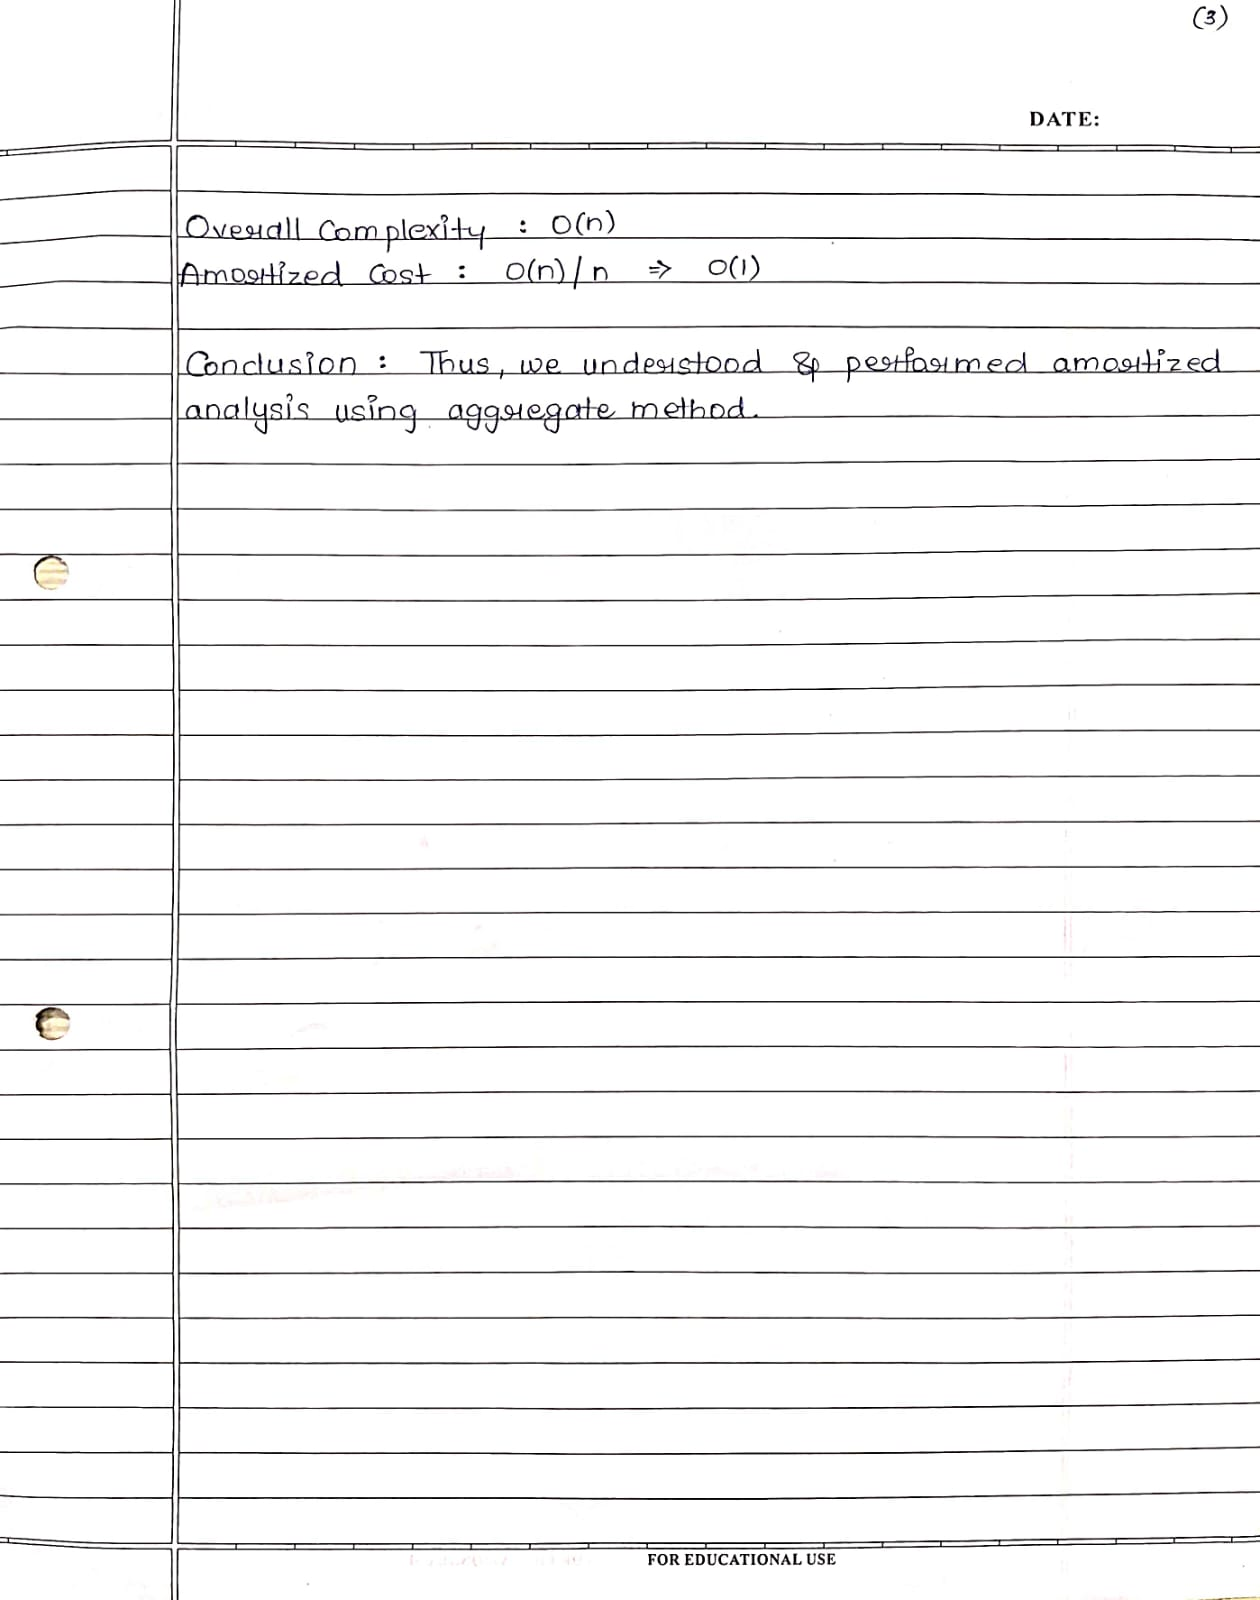 (3)
DATE:
Overall Complexity : O(n)
Amortized Cost : O(n)/n ⇒ O(1)
Conclusion : Thus, we understood & performed amortized
analysis using aggregate method.
FOR EDUCATIONAL USE